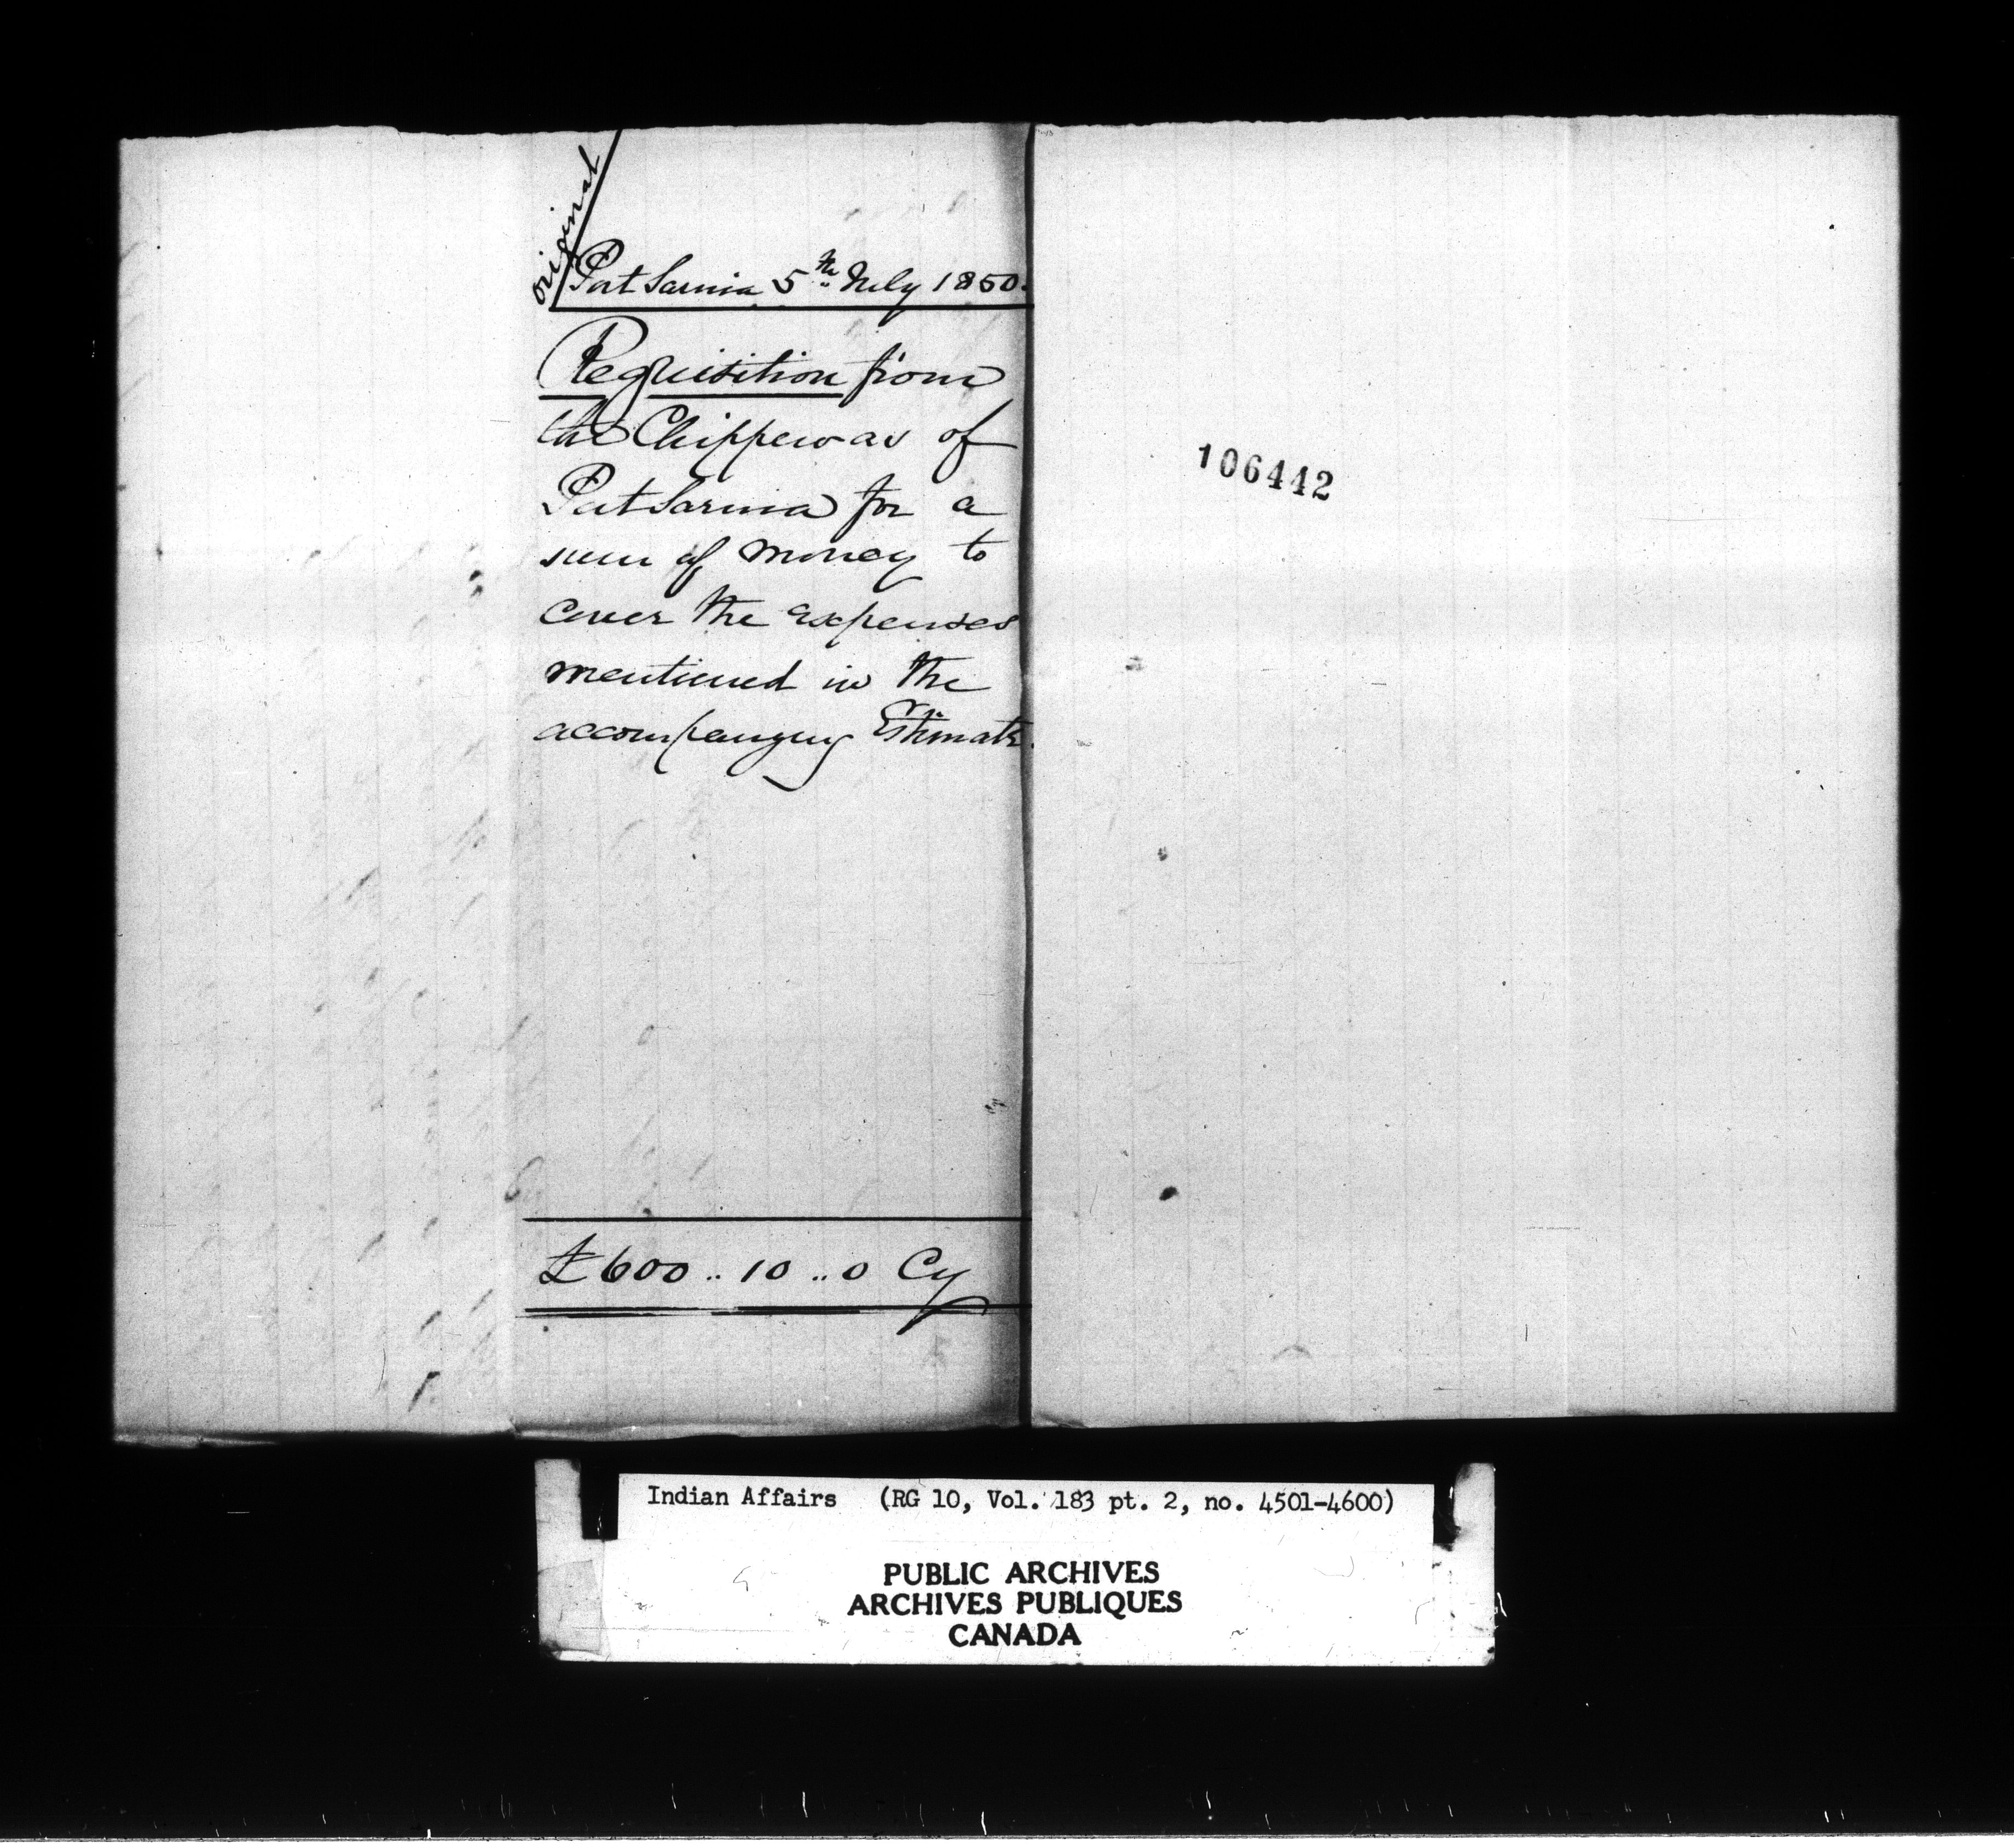 original
Port Sarnia 5th July 1850.
Requisition from
the Chippewas of
Port Sarnia for a
sum of money to
cover the expenses
mentioned in the
accompanying Estimate.
£600 .. 10 .. 0 Cy
106442
Indian Affairs (RG 10, Vol. 183 pt. 2, no. 4501-4600)
PUBLIC ARCHIVES
ARCHIVES PUBLIQUES
CANADA